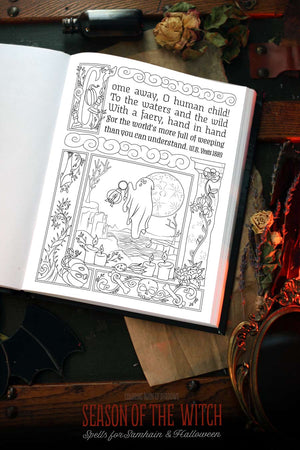 Come away, O human child!
To the waters and the wild
With a faery, hand in hand
For the world's more full of weeping
than you can understand. W.B. Yeats 1889
COLORING BOOK OF SHADOWS
SEASON OF THE WITCH
Spells for Samhain & Halloween